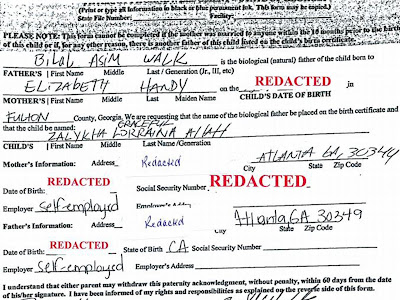 (Print or type all information in black or blue permanent ink. This form may be copied.)
State File Number: Facility:
PLEASE NOTE: This form cannot be completed if the mother was married to anyone within the 10 months prior to the birth
of this child or if, for any other reason, there is another father of this child listed on the child's birth certificate.
Bilal Asim Walk is the biological (natural) father of the child born to
FATHER'S First Name Middle Last / Generation (Jr., III, etc)
Elizabeth Handy on the REDACTED in
MOTHER'S First Name Middle Last Maiden Name CHILD'S DATE OF BIRTH
Fulton County, Georgia. We are requesting that the name of the biological father be placed on the birth certificate and
that the child be named: GRACEFUL
ZALYKHA LORRAINA Allah
CHILD'S First Name Middle Last Name/Generation
Mother's Information: Address Redacted ATLANTA GA, 30344
City State Zip Code
Date of Birth: REDACTED Social Security Number REDACTED
Employer self-employed Employer's Address
Father's Information: Address Redacted Atlanta, GA 30349
City State Zip Code
Date of Birth: REDACTED State of Birth CA Social Security Number
Employer self-employed Employer's Address
I understand that either parent may withdraw this paternity acknowledgment, without penalty, within 60 days from the date
of his/her signature. I have been informed of my rights and responsibilities as explained on the reverse side of this form.